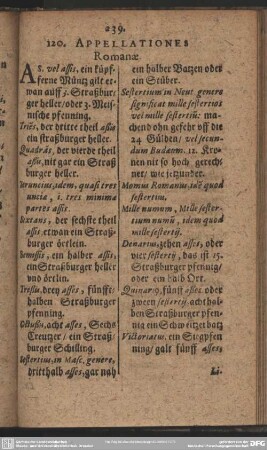 239.
120. APPELLATIONES
Romanæ
AS. vel assis, ein küpf-
ferne Müntz gilt et-
wan auff 3. Straßbur-
ger heller/ oder 3. Meis-
nische pfenning.
Triẽs, der dritte theil assis
ein straßburger heller.
Quadrãs, der vierde theil
assis, nit gar ein Straß
burger heller.
uncius, idem, quasi tres
uncia, i. tres minima
partes assis.
Sextans, der sechste theil
assis, etwan ein Straß-
burger örtlein.
Semissis, ein halber assis,
ein Straßburger heller
und örtlin.
Tressis, drey asses, fünfft-
halben Straßburger
pfenning.
Octussis, acht asses, Sechs
Creutzer/ ein Straß-
burger Schilling.
Sestertius, in Masc, genere,
dritthalb asses, gar nah
ein halber Batzen oder
ein Stüber.
Sestertium in Neut. genere
significat mille sestertios
vel mille sestertiũ: ma-
chend ohn gefehr off die
24 Gülden/ vel secun-
dum Budæum. 12. Kro-
nen nit so hoch gerech-
net/ wie jetzunder.
Mamus Romanus, idẽ quod
sestertius.
Mille numum, Mille sester-
tium numũ, idem quod
mille sestertij.
Denarius, zehen asses, oder
vier sestertij, das ist 15.
Straßburger pfenning/
oder ein halb Ort.
Quinariꝰ, fünff asses, oder
zween sestertij, acht hal-
ben Straßburger pfen-
nig ein Schweitzer batz
Victoriatus, ein Siegpfen-
ning/ galt fünff asses,
Li.